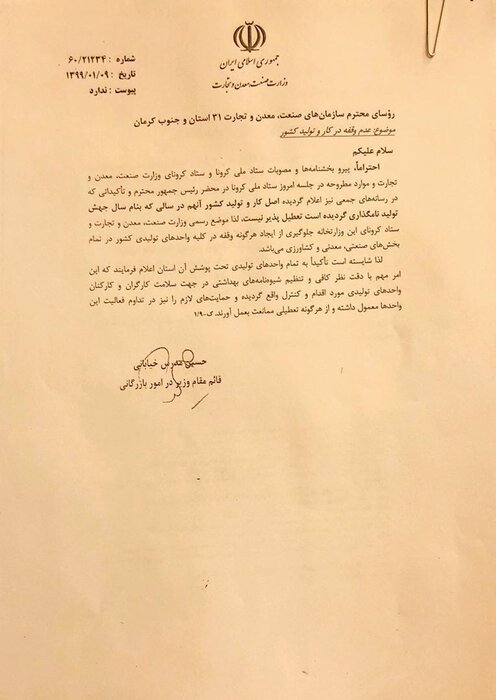 جمهوری اسلامی ایران
وزارت صنعت، معدن و تجارت
شماره : ۶۰/۲۱۲۳۴
تاریخ : ۱۳۹۹/۰۱/۰۹
پیوست : ندارد
رؤسای محترم سازمان‌های صنعت، معدن و تجارت ۳۱ استان و جنوب کرمان
موضوع: عدم وقفه در کار و تولید کشور
سلام علیکم
احتراماً، پیرو بخشنامه‌ها و مصوبات ستاد ملی کرونا و ستاد کرونای وزارت صنعت، معدن و
تجارت و موارد مطروحه در جلسه امروز ستاد ملی کرونا در محضر رئیس جمهور محترم و تأکیداتی که
در رسانه‌های جمعی نیز اعلام گردیده اصل کار و تولید کشور آنهم در سالی که بنام سال جهش
تولید نامگذاری گردیده است تعطیل پذیر نیست. لذا موضع رسمی وزارت صنعت، معدن و تجارت و
ستاد کرونای این وزارتخانه جلوگیری از ایجاد هرگونه وقفه در کلیه واحدهای تولیدی کشور در تمام
بخش‌های صنعتی، معدنی و کشاورزی می‌باشد.
لذا شایسته است تأکیداً به تمام واحدهای تولیدی تحت پوشش آن استان اعلام فرمایند که این
امر مهم با دقت نظر کافی و تنظیم شیوه‌نامه‌های بهداشتی در جهت سلامت کارگران و کارکنان
واحدهای تولیدی مورد اقدام و کنترل واقع گردیده و حمایت‌های لازم را نیز در تداوم فعالیت این
واحدها معمول داشته و از هرگونه تعطیلی ممانعت بعمل آورند. ی-۱/۹
حسین مدرس خیابانی
قائم مقام وزیر در امور بازرگانی